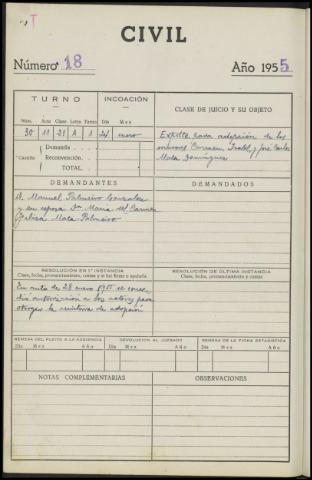 T
CIVIL
Número 18
Año 1955
TURNO
INCOACIÓN
CLASE DE JUICIO Y SU OBJETO
Núm. Aut. Clase Letra Turno Día Mes
30 11 21 A 1 24 enero
Expdte. para adopción de los
menores Carmen Isabel y José Carlos
Mata Domínguez
Cuantía
Demanda
Reconvención
TOTAL
DEMANDANTES
DEMANDADOS
D. Manuel Palmeiro González
y su esposa Dª María del Carmen
Mata Palmeiro
RESOLUCIÓN EN 1.ª INSTANCIA
Clase, fecha, pronunciamiento, costas y si fué firme o apelada
RESOLUCIÓN DE ÚLTIMA INSTANCIA
Clase, fecha, pronunciamiento, costas
En auto de 28 enero 1955 se conce
dió autorización a los actores para
otorgar la escritura de adopción
REMESA DEL PLEITO A LA AUDIENCIA
DEVOLUCIÓN AL JUZGADO
REMESA DE LA FICHA ESTADÍSTICA
Día Mes Año
Día Mes Año
Día Mes Año
NOTAS COMPLEMENTARIAS
OBSERVACIONES